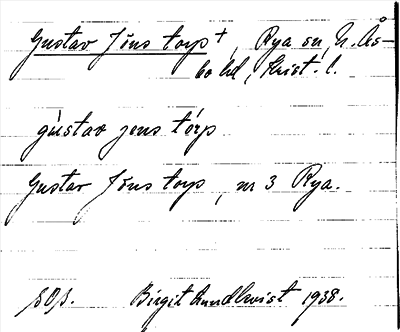 Gustav Jöns torp +, Rya sn, N. Ås-
bo hd, Krist. l.
gùstav jens tórp
Gustav Jöns torp, nr 3 Rya.
Birgit Lundkvist 1938.